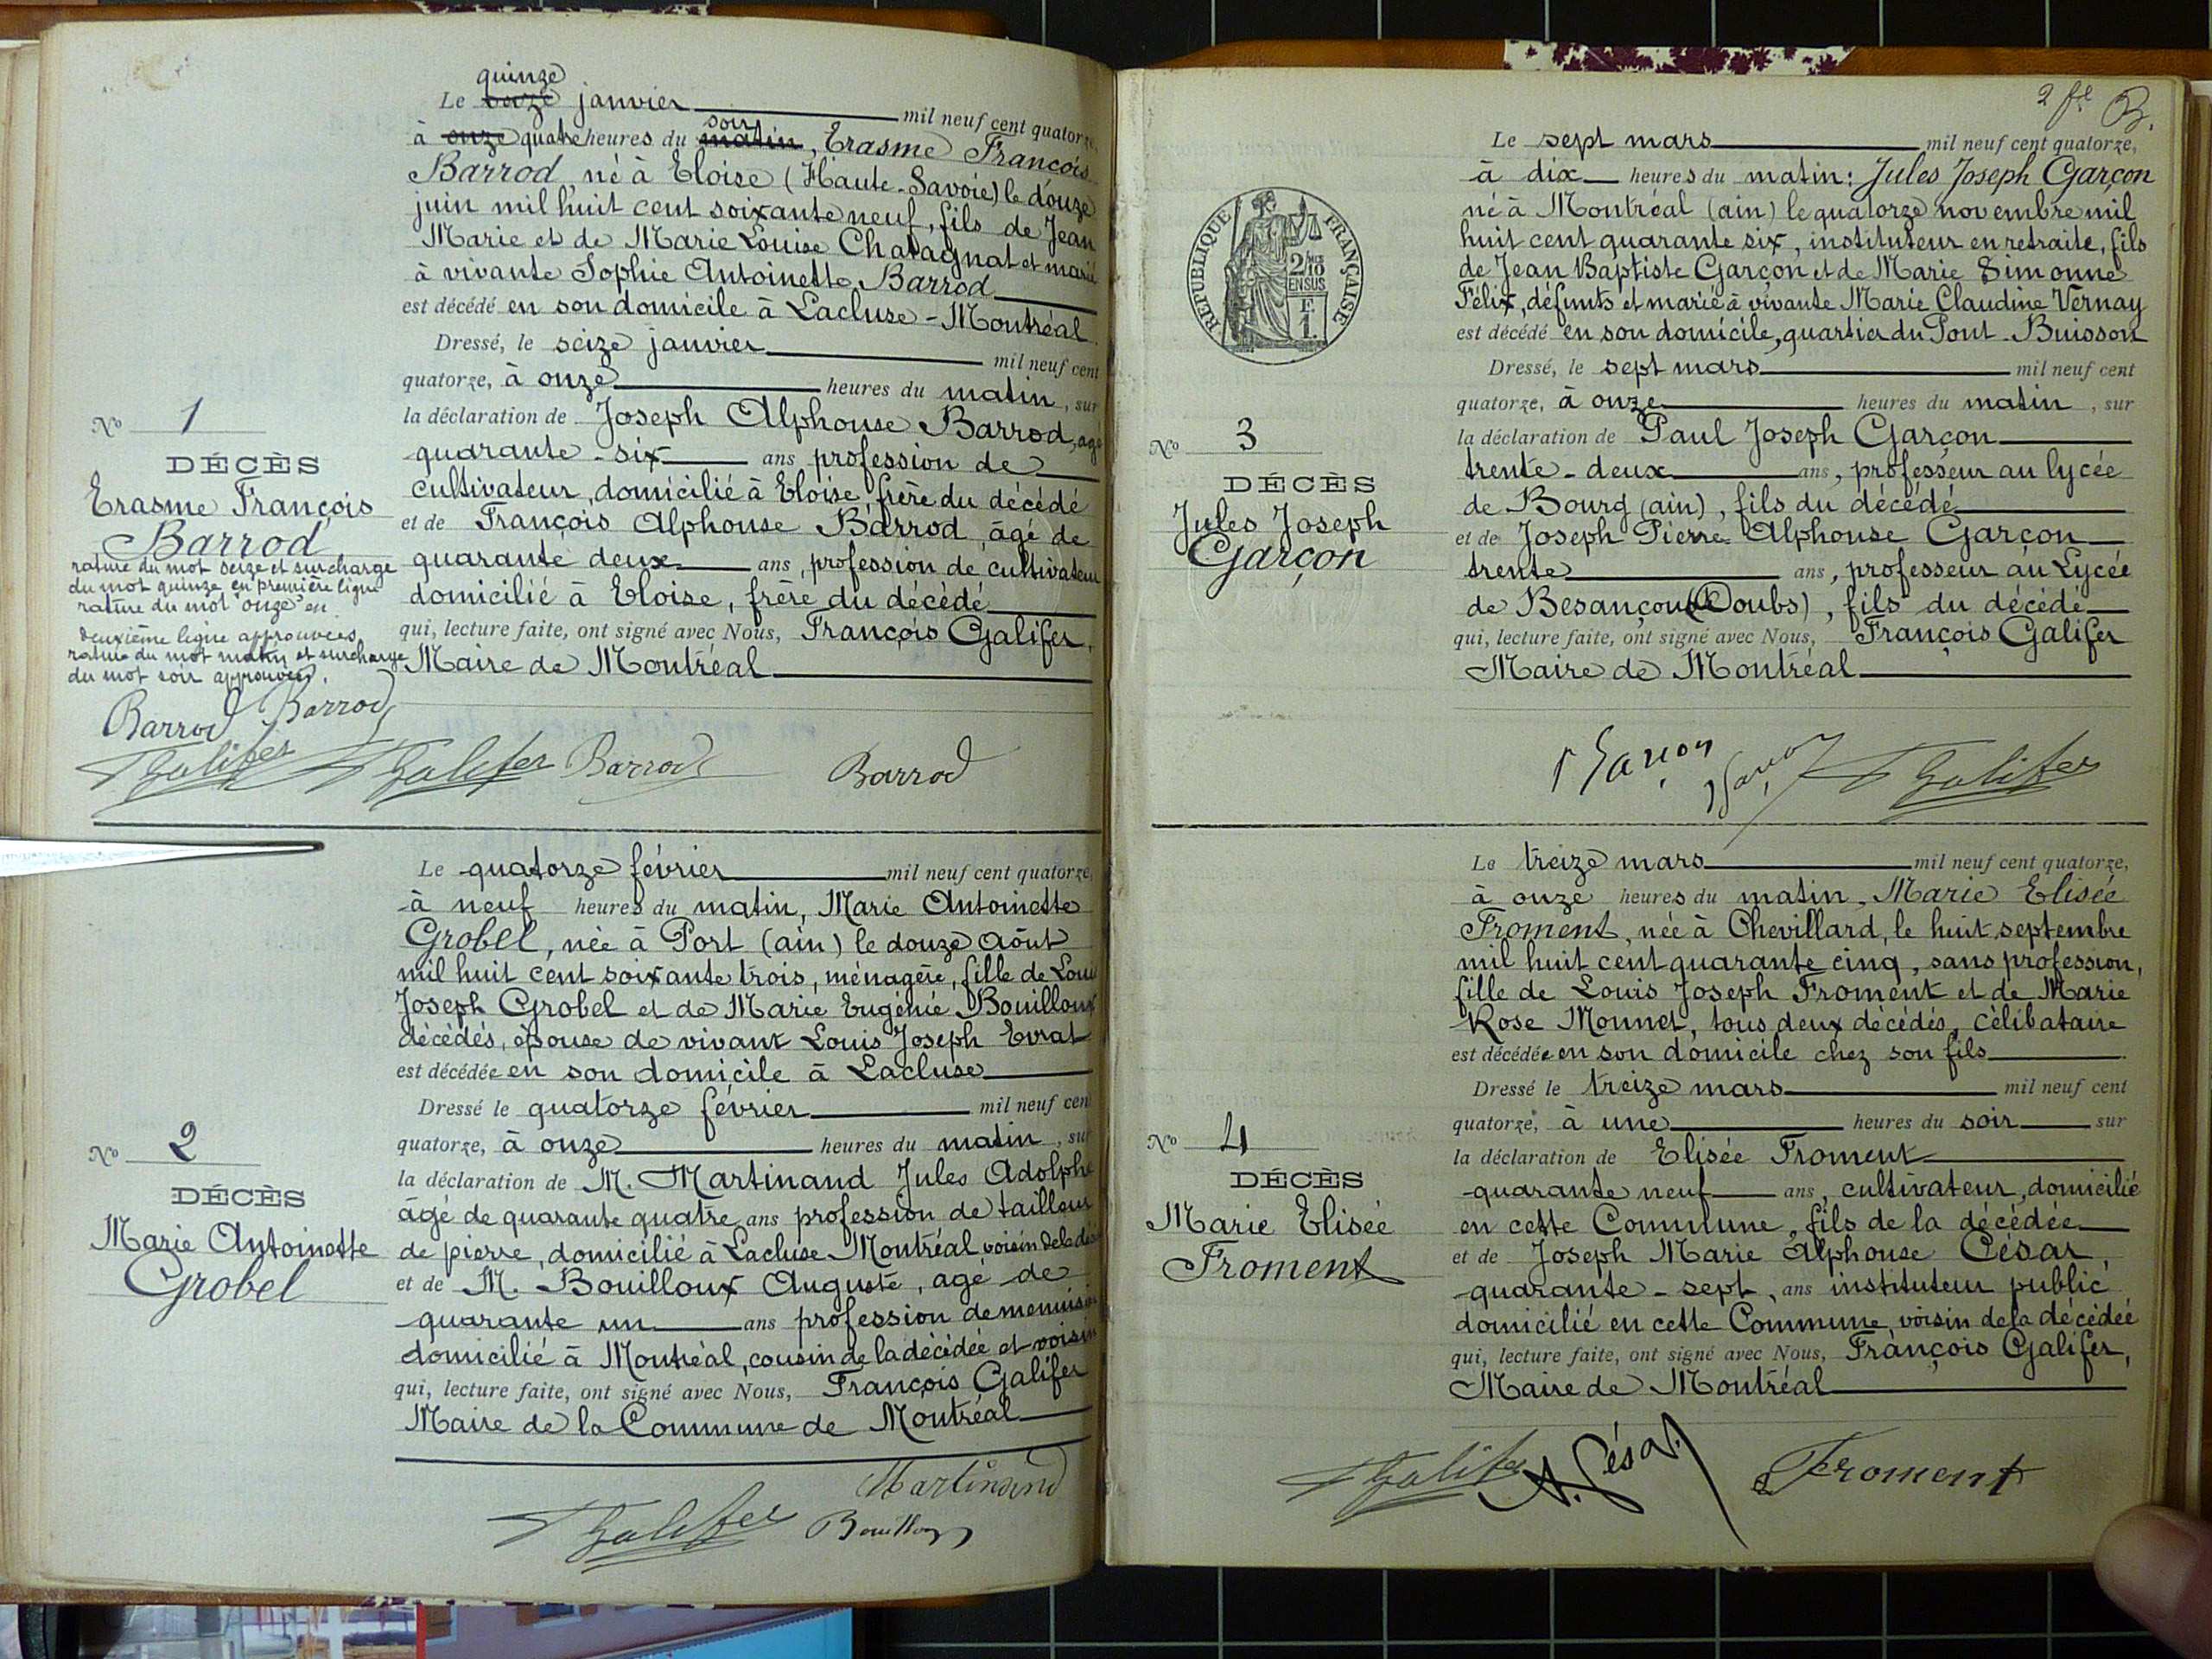 quinze
Le seize janvier mil neuf cent quatorze,
soir
à onze quatre heures du matin, Erasme François
Barrod, né à Eloise (Haute-Savoie) le douze
juin mil huit cent soixante neuf, fils de Jean
Marie et de Marie Louise Chavagnat et marié
à vivante Sophie Antoinette Barrod
est décédé en son domicile à Lacluse-Montréal.
Dressé, le seize janvier mil neuf cent
quatorze, à onze heures du matin, sur
la déclaration de Joseph Alphonse Barrod, agé
quarante-six ans profession de
cultivateur, domicilié à Eloise, frère du décédé
et de François Alphonse Barrod, âgé de
quarante deux ans, profession de cultivateur
domicilié à Eloise, frère du décédé
qui, lecture faite, ont signé avec Nous, François Galifer,
Maire de Montréal
No 1
DÉCÈS
Erasme François
Barrod
rature du mot seize et surcharge
du mot quinze en première ligne
rature du mot "onze" en
deuxième ligne approuvées
rature du mot matin et surcharge
du mot soir approuvées.
Barrod Barrod
Galifer Galifer Barrod Barrod
Le quatorze février mil neuf cent quatorze,
à neuf heures du matin, Marie Antoinette
Grobel, née à Port (ain) le douze Août
mil huit cent soixante trois, ménagère, fille de Louis
Joseph Grobel et de Marie Eugénie Bouilloux
décédés, épouse de vivant Louis Joseph Evrat
est décédée en son domicile à Lacluse
Dressé le quatorze février mil neuf cent
quatorze, à onze heures du matin, sur
la déclaration de M. Martinand Jules Adolphe
âgé de quarante quatre ans profession de tailleur
de pierre, domicilié à Lacluse-Montréal voisin de la
et de M. Bouilloux Auguste, agé de
quarante un ans profession de menuisier
domicilié à Montréal, cousin de la décédée et voisin
qui, lecture faite, ont signé avec Nous, François Galifer
Maire de la Commune de Montréal
No 2
DÉCÈS
Marie Antoinette
Grobel
Martinand
Galifer Bouilloux
2 fe B.
Le sept mars mil neuf cent quatorze,
à dix heures du matin: Jules Joseph Garçon
né à Montréal (ain) le quatorze novembre mil
huit cent quarante six, instituteur en retraite, fils
de Jean Baptiste Garçon et de Marie Simonne
Félix, défunts et marié à vivante Marie Claudine Vernay
est décédé en son domicile, quartier du Pont-Buisson
Dressé, le sept mars mil neuf cent
quatorze, à onze heures du matin, sur
la déclaration de Paul Joseph Garçon
trente-deux ans, professeur au lycée
de Bourg (ain), fils du décédé
et de Joseph Pierre Alphonse Garçon
trente ans, professeur au Lycée
de Besançon (Doubs), fils du décédé
qui, lecture faite, ont signé avec Nous, François Galifer
Maire de Montréal
REPUBLIQUE FRANÇAISE
2/10
EN SUS
F.
1.
No 3
DÉCÈS
Jules Joseph
Garçon
P Garçon J Garçon Galifer
Le treize mars mil neuf cent quatorze,
à onze heures du matin, Marie Elisée
Froment, née à Chevillard, le huit septembre
mil huit cent quarante cinq, sans profession,
fille de Louis Joseph Froment et de Marie
Rose Monnet, tous deux décédés, célibataire
est décédée en son domicile chez son fils.
Dressé le treize mars mil neuf cent
quatorze, à une heures du soir sur
la déclaration de Elisée Froment
quarante neuf ans, cultivateur, domicilié
en cette Commune, fils de la décédée
et de Joseph Marie Alphonse César,
quarante-sept, ans instituteur public
domicilié en cette Commune, voisin de la décédée
qui, lecture faite, ont signé avec Nous, François Galifer,
Maire de Montréal
No 4
DÉCÈS
Marie Elisée
Froment
Galifer A. César E Froment